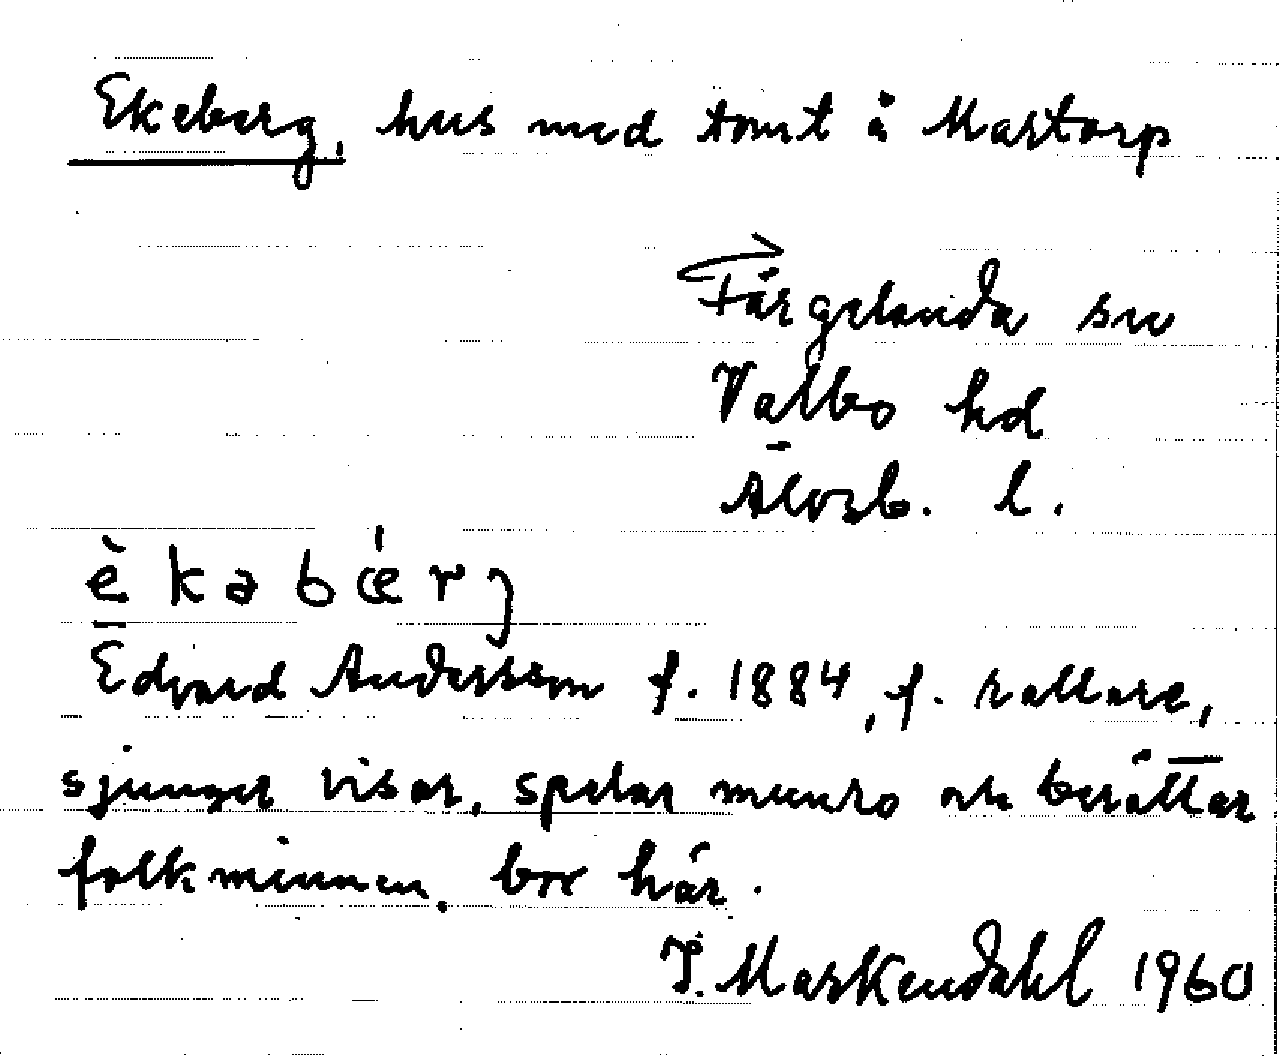 Ekeberg, hus med tomt å Martorp
Färgelanda sn
Valbo hd
Älvsb. l.
èkabœ́rj
Edvard Andersson f. 1884, f. rallare,
sjunger visor, spelar munro och berättar
folkminnen, bor här.
I. Maskendahl 1960